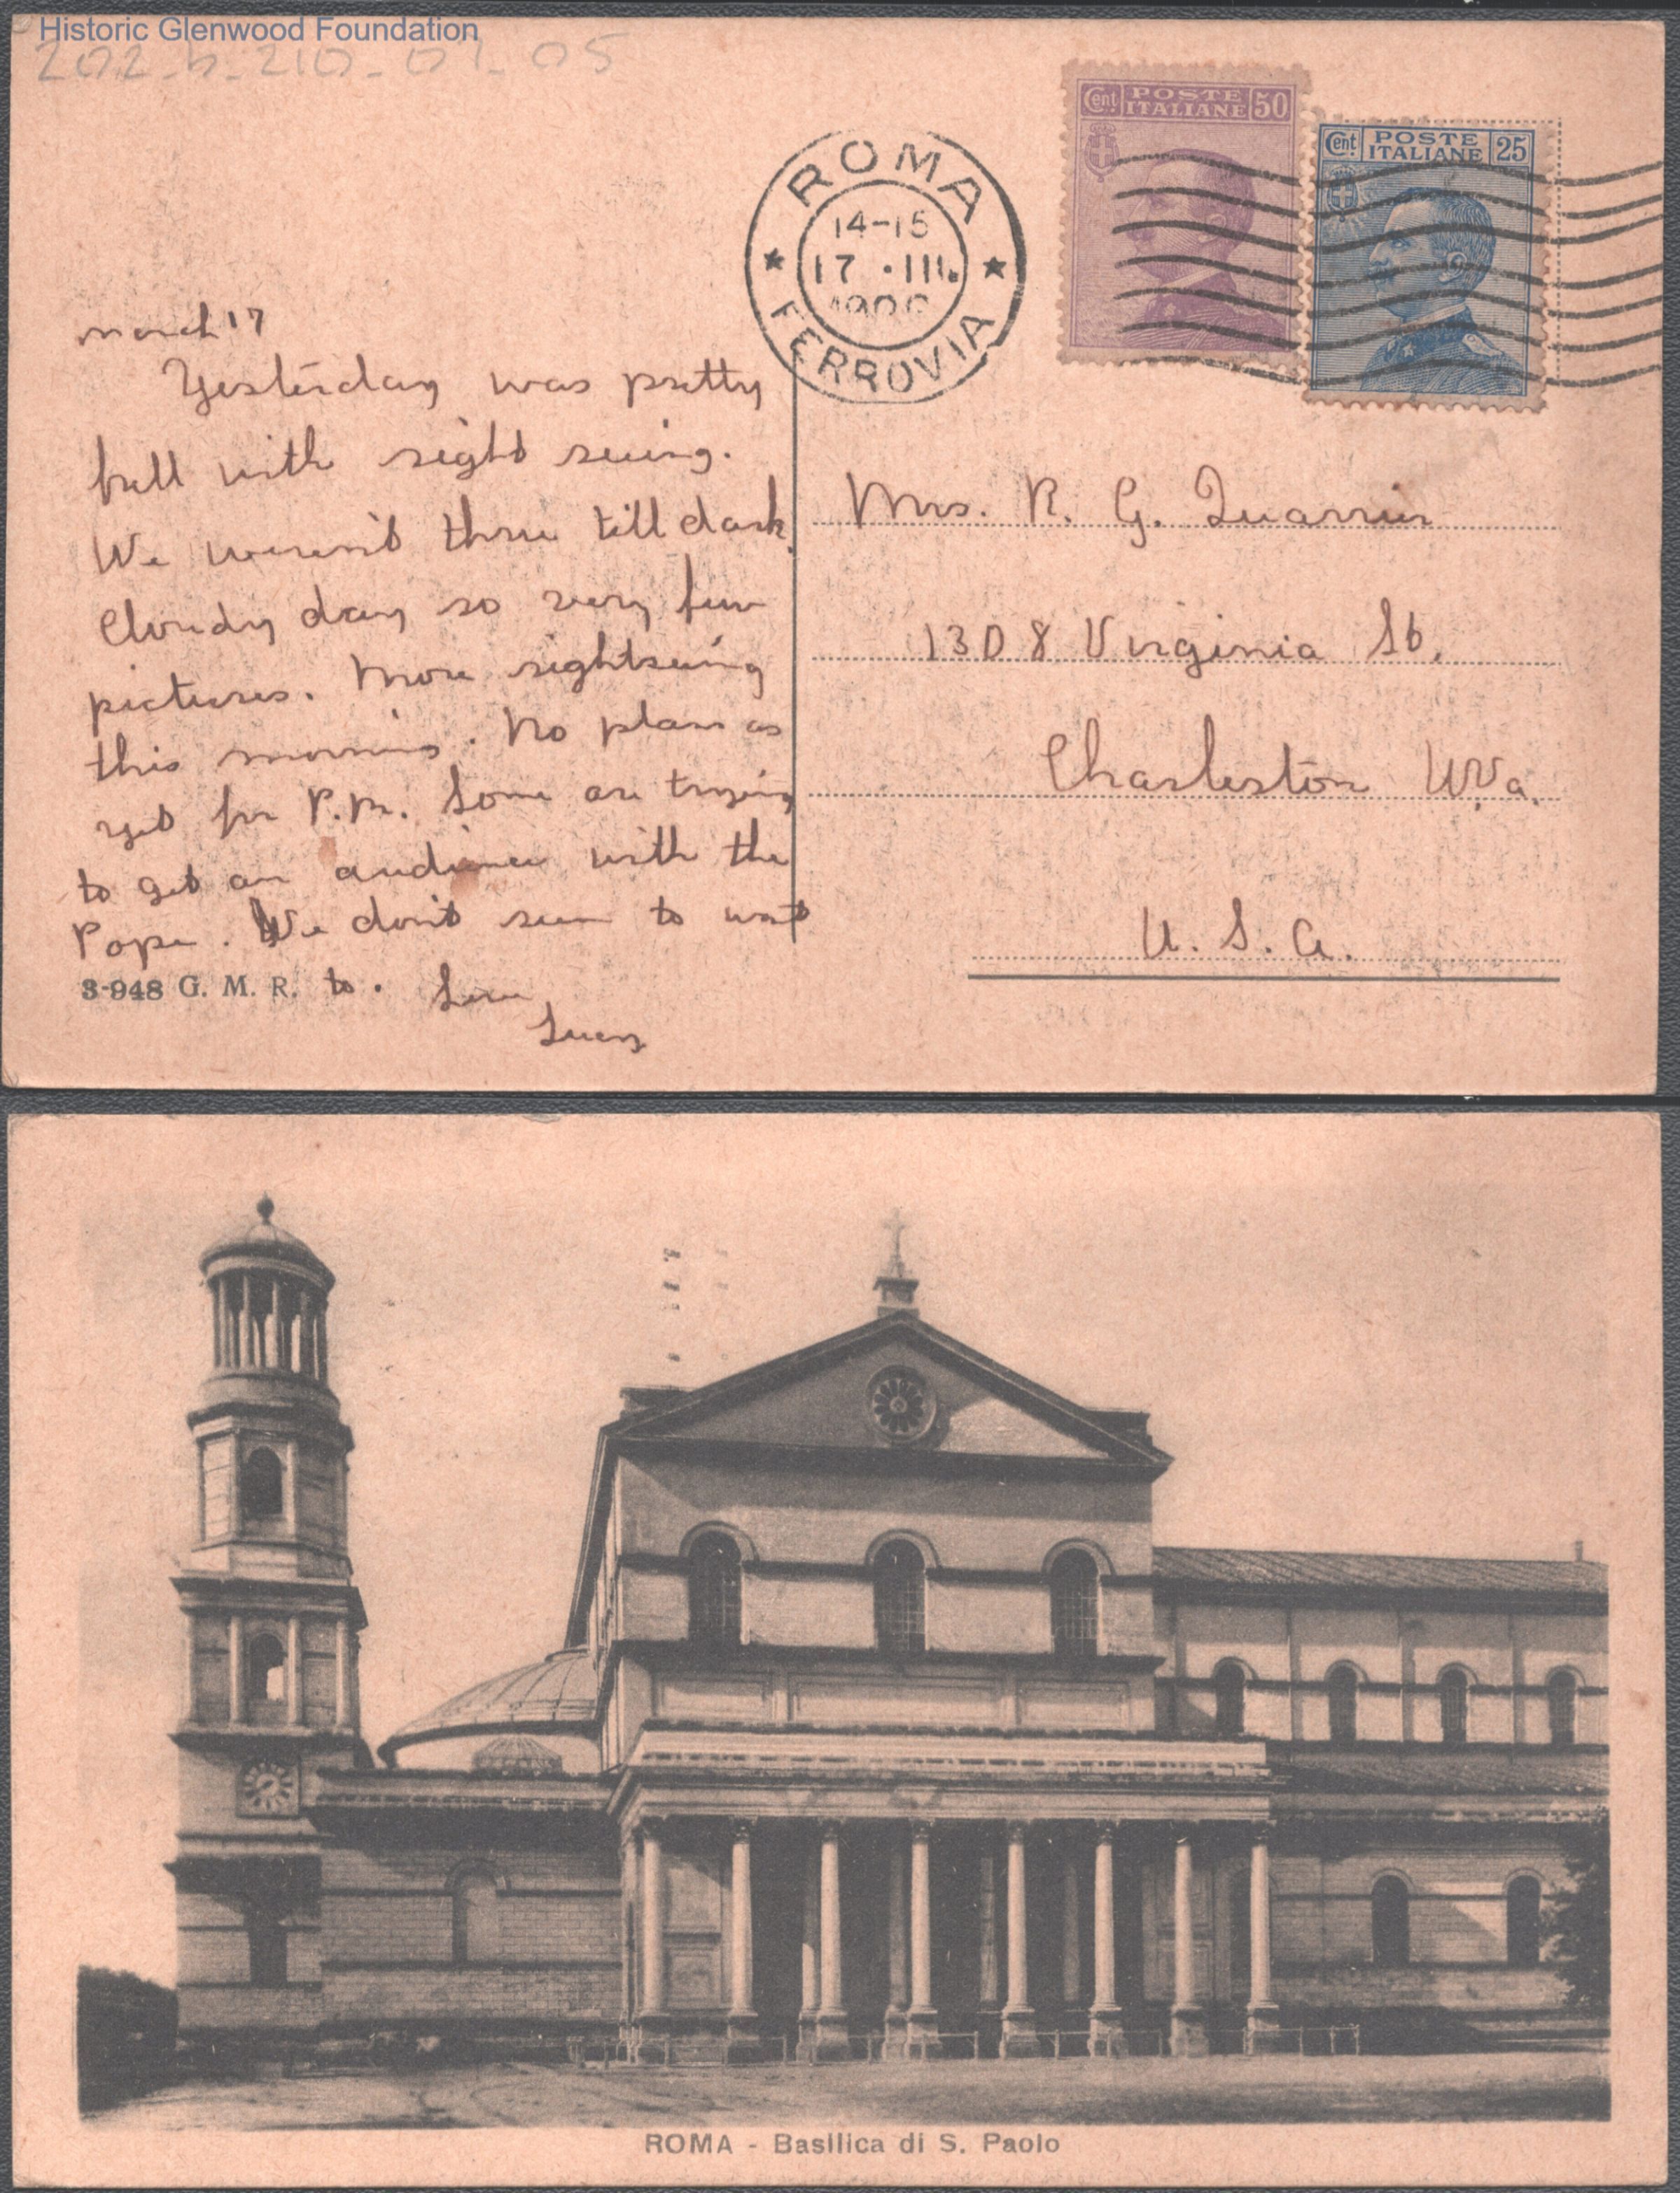 Historic Glenwood Foundation
202-b-210-01-05
Cent POSTE ITALIANE 50
Cent POSTE ITALIANE 25
ROMA
14-15
17 . III.
FERROVIA
march 17
Yesterday was pretty
full with sight seeing.
We weren't thru till dark.
Cloudy day so very few
pictures. More sightseeing
this morning. No plans as
yet for P.M. Some are trying
to get an audience with the
Pope. We don't seem to want
to. Love
Lucy
3-948 G. M. R.
Mrs. R. G. Quarrier
1308 Virginia St.
Charleston W.Va.
U. S. A.
ROMA - Basilica di S. Paolo